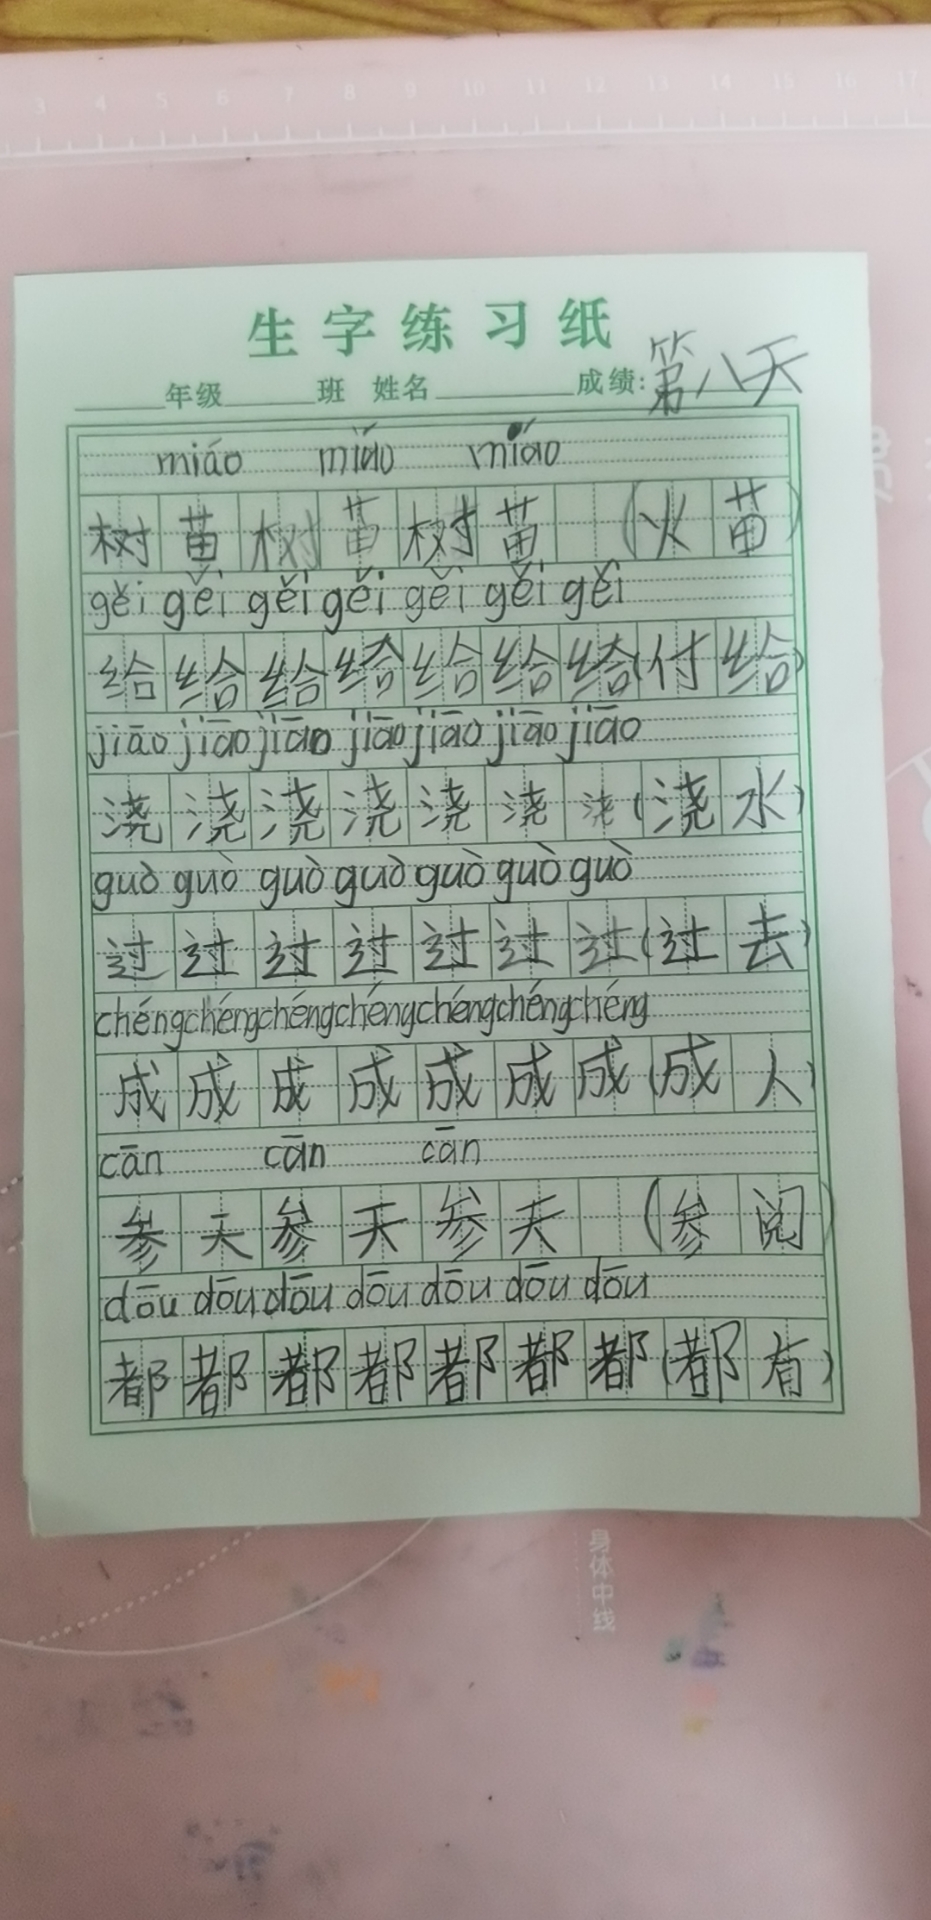 3 4 5 6 7 8 9 10 11 12 13 14 15 16 17
生字练习纸
年级 班 姓名 成绩: 第八天
miáo miáo miáo
树苗树苗树苗 (火苗)
gěi gěi gěi gěi gěi gěi gěi
给给给给给给给(付给)
jiāo jiāo jiāo jiāo jiāo jiāo jiāo
浇浇浇浇浇浇浇(浇水)
guò guò guò guò guò guò guò
过过过过过过过(过去)
chéng chéng chéng chéng chéng chéng chéng
成成成成成成成(成人)
cān cān cān
参天参天参天 (参阅)
dōu dōu dōu dōu dōu dōu dōu
都都都都都都都(都有)
身体中线